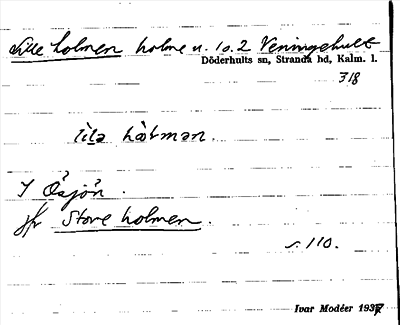 Lille holmen holme u. 1 o. 2 Veningehult
Döderhults sn, Stranda hd, Kalm. l.
318
lìlə hòlmən.
I Ösjön.
jfr Store holmen.
s. 110.
Ivar Modéer 1937